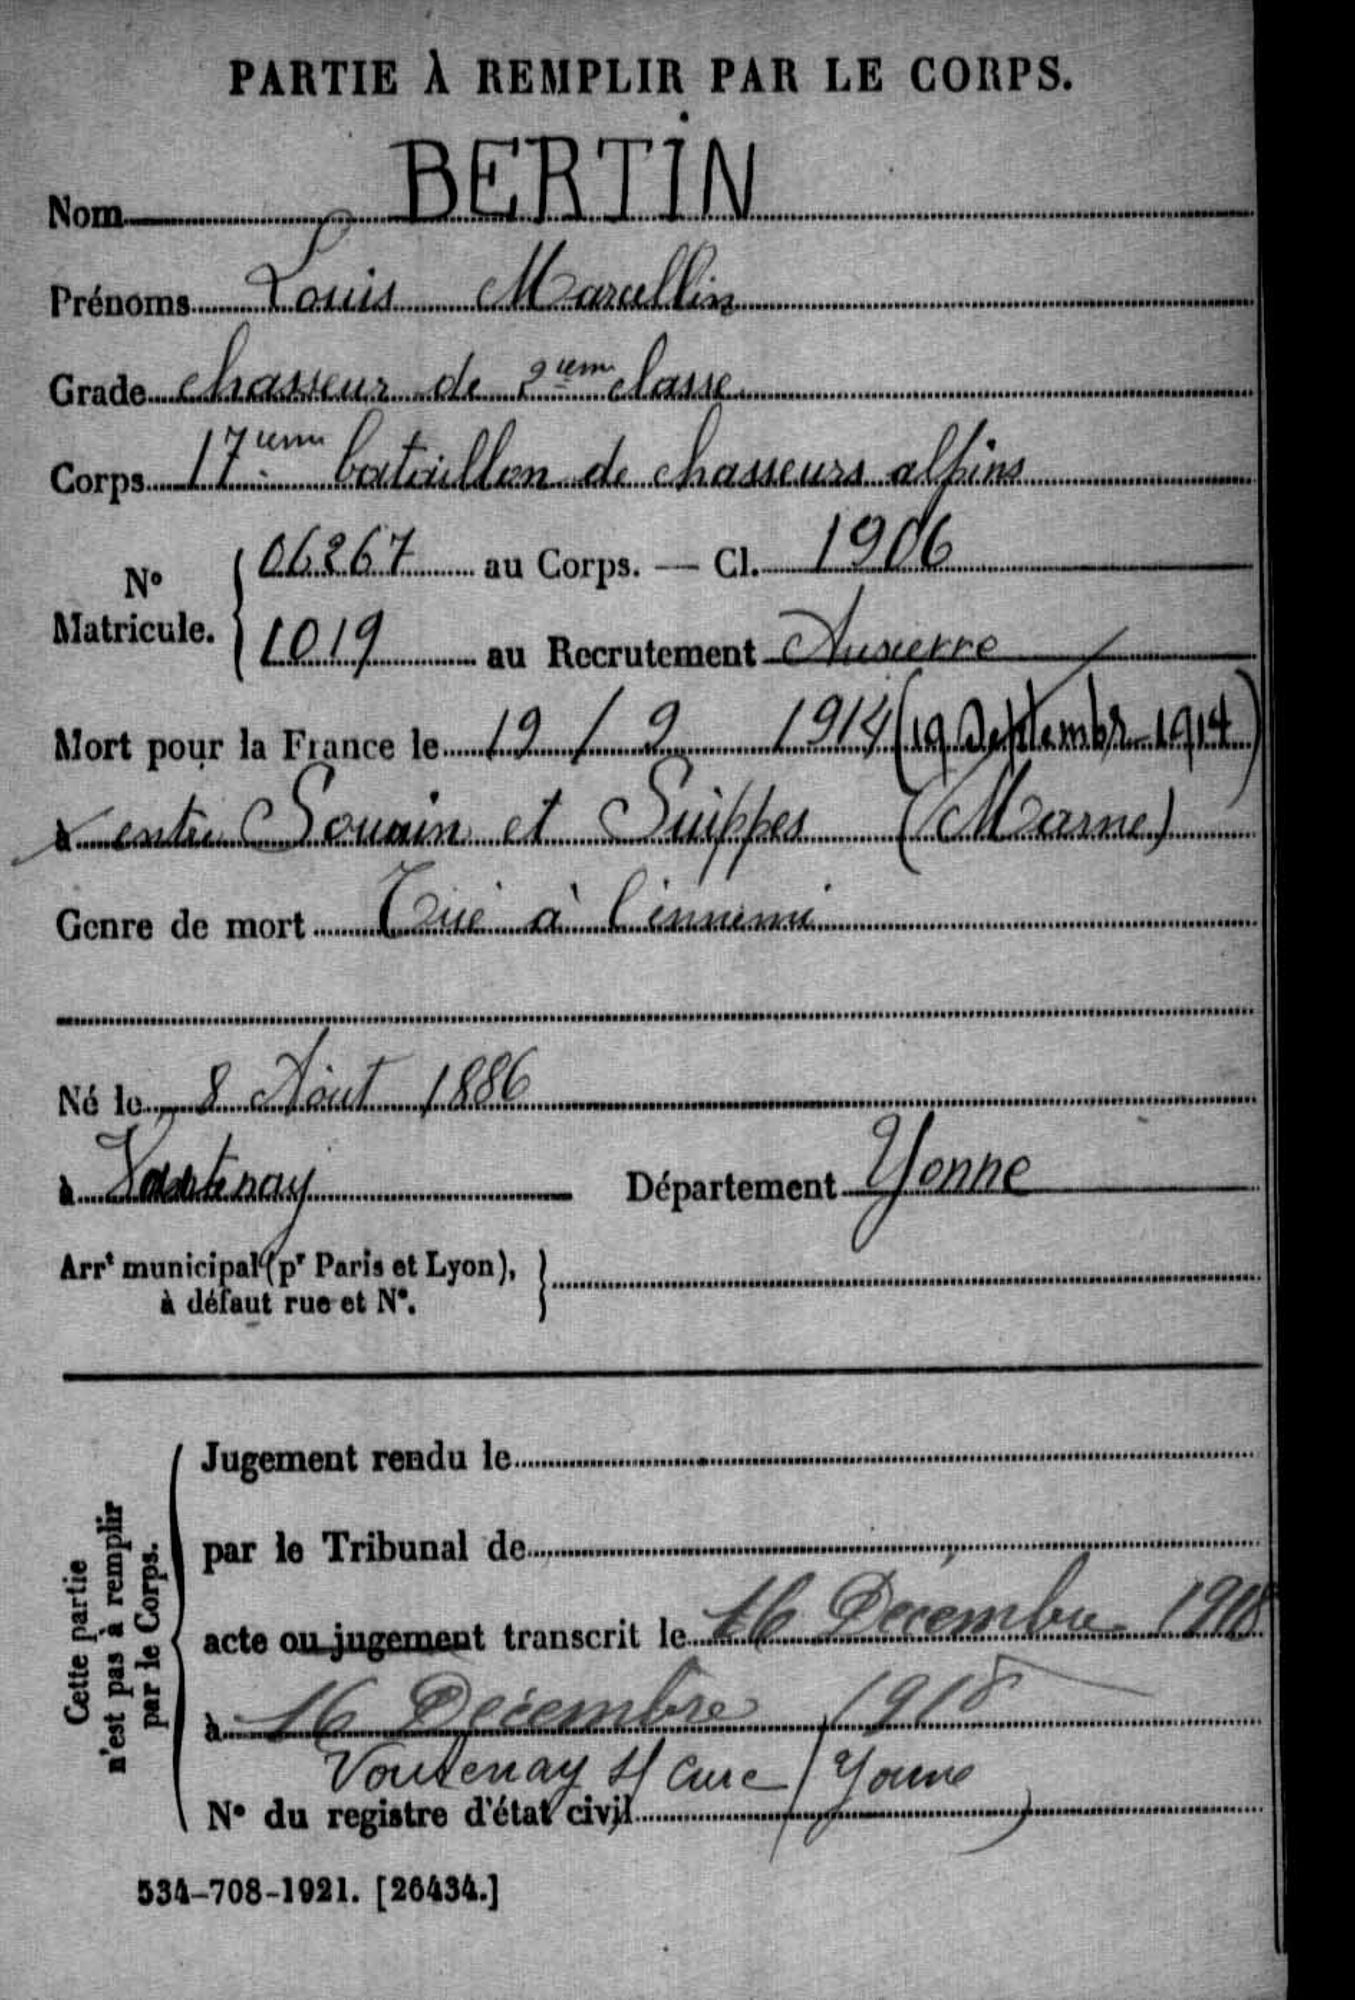 PARTIE À REMPLIR PAR LE CORPS.
Nom BERTIN
Prénoms Louis Marcellin
Grade chasseur de 2ième classe
Corps 17ième bataillon de chasseurs alpins
N° Matricule. { 06267 au Corps. — Cl. 1906
1019 au Recrutement Auxerre
Mort pour la France le 19 / 9 1914 (19 Septembre 1914)
à entre Souain et Suippes (Marne)
Genre de mort Tué à l'ennemi
Né le 8 Août 1886
à Voutenay Département Yonne
Arrt municipal (pr Paris et Lyon), }
à défaut rue et N°.
Cette partie
n'est pas à remplir
par le Corps.
Jugement rendu le
par le Tribunal de
acte ou jugement transcrit le 16 Décembre 1918
à 16 Décembre 1918
Voutenay s/ Cure (Yonne)
N° du registre d'état civil
534-708-1921. [26434.]